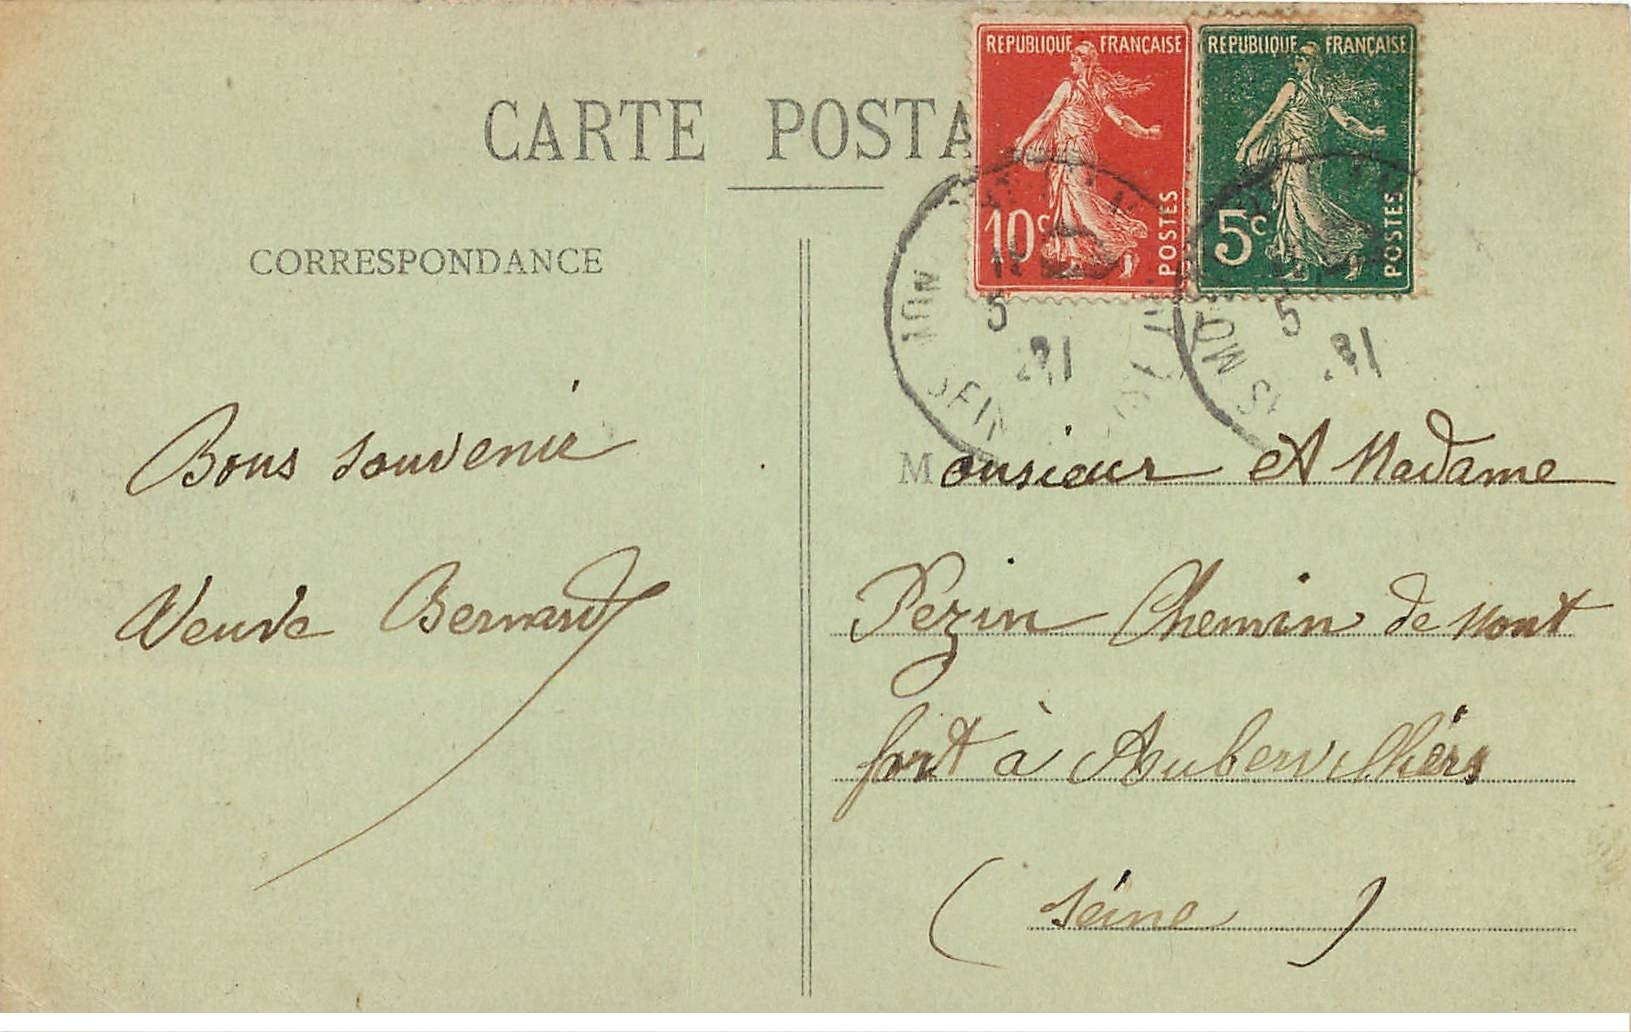 CARTE POSTA
REPUBLIQUE FRANÇAISE
10c
POSTES
REPUBLIQUE FRANÇAISE
5c
POSTES
5
5
CORRESPONDANCE
Bons souvenir
Veuve Bernard
Monsieur et Madame
Pezin Chemin de Mont
fort à Aubervilliers
(Seine)